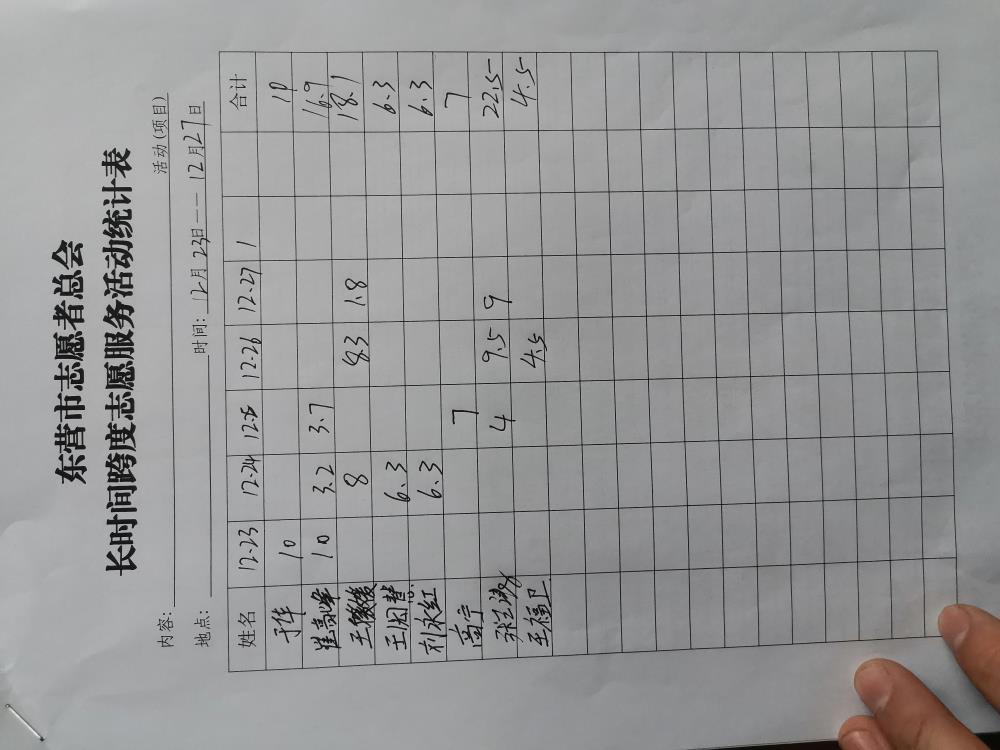 东营市志愿者总会
长时间跨度志愿服务活动统计表
内容: 活动(项目)
地点: 时间: 12月23日--12月27日
姓名 12-23 12-24 12-26 12-27 1 合计
于华 10 10
崔亮峰 10 3.2 3.7 16.9
王 8 8.3 1.8 18.1
王 6.3 6.3
刘永红 6.3 6.3
高宁 7 7
张 4 9.5 9 22.5
王福卫 4.5 4.5